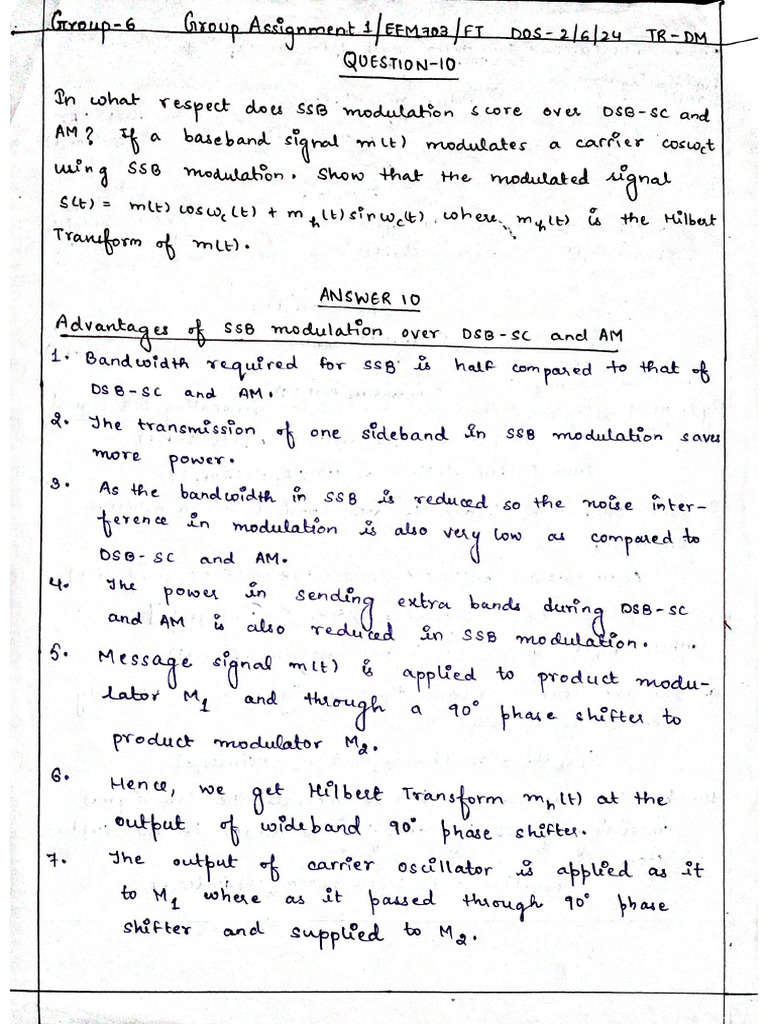 Group-6 Group Assignment 1/EEM703/FT DOS-2/6/24 TR-DM
QUESTION-10
In what respect does SSB modulation score over DSB-SC and
AM? If a baseband signal m(t) modulates a carrier cosωct
using SSB modulation. Show that the modulated signal
S(t) = m(t) cosωc(t) + mh(t) sinωc(t), where mh(t) is the Hilbert
Transform of m(t).
ANSWER 10
Advantages of SSB modulation over DSB-SC and AM
1. Bandwidth required for SSB is half compared to that of
DSB-SC and AM.
2. The transmission of one sideband in SSB modulation saves
more power.
3. As the bandwidth in SSB is reduced so the noise inter-
ference in modulation is also very low as compared to
DSB-SC and AM.
4. The power in sending extra bands during DSB-SC
and AM is also reduced in SSB modulation.
5. Message signal m(t) is applied to product modu-
lator M1 and through a 90° phase shifter to
product modulator M2.
6. Hence, we get Hilbert Transform mh(t) at the
output of wideband 90° phase shifter.
7. The output of carrier oscillator is applied as it
to M1 where as it passed through 90° phase
shifter and supplied to M2.